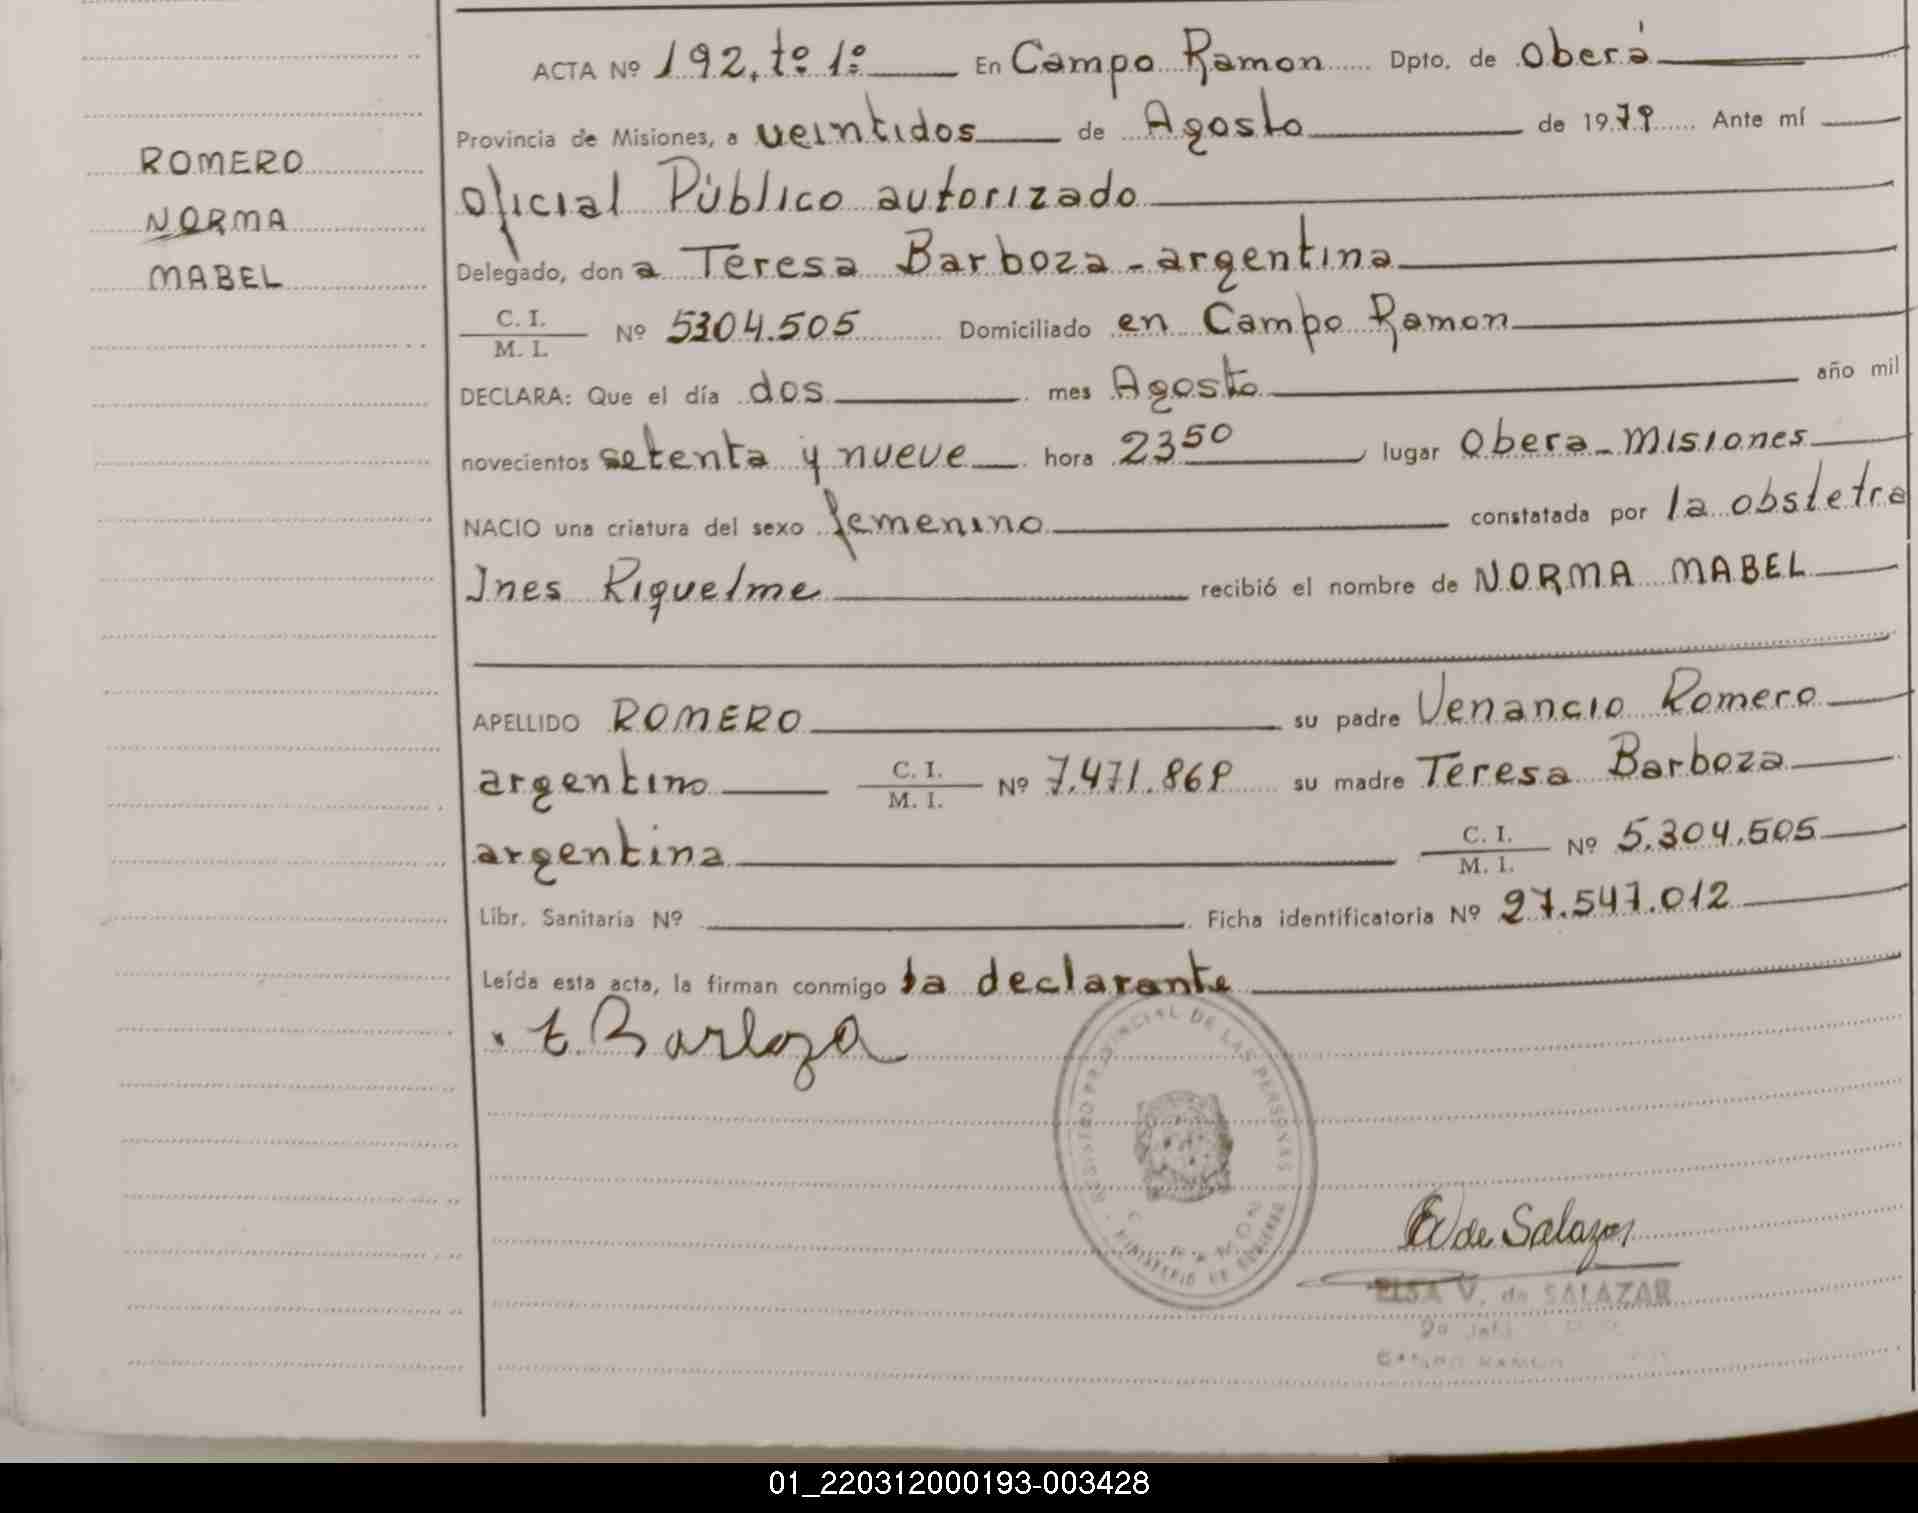 ACTA Nº 192, tº 1º En Campo Ramon Dpto. de Oberá
Provincia de Misiones, a veintidos de Agosto de 1979 Ante mí
ROMERO
NORMA
MABEL
Oficial Público autorizado
Delegado, don a Teresa Barboza - argentina
C. I. / M. I. Nº 5304.505 Domiciliado en Campo Ramon
DECLARA: Que el día dos mes Agosto año mil
novecientos setenta y nueve hora 23 50 lugar Obera - Misiones
NACIO una criatura del sexo femenino constatada por la obstetra
Ines Riquelme recibió el nombre de NORMA MABEL
APELLIDO ROMERO su padre Venancio Romero
argentino C. I. / M. I. Nº 7.471.869 su madre Teresa Barboza
argentina C. I. / M. I. Nº 5.304.505
Libr. Sanitaria Nº Ficha identificatoria Nº 27.547.012
Leída esta acta, la firman conmigo la declarante
t Barboza
REGISTRO PROVINCIAL DE LAS PERSONAS
MINISTERIO DE GOBIERNO
C. RAMON
E V de Salazar
ELSA V. de SALAZAR
CAMPO RAMON
01_220312000193-003428